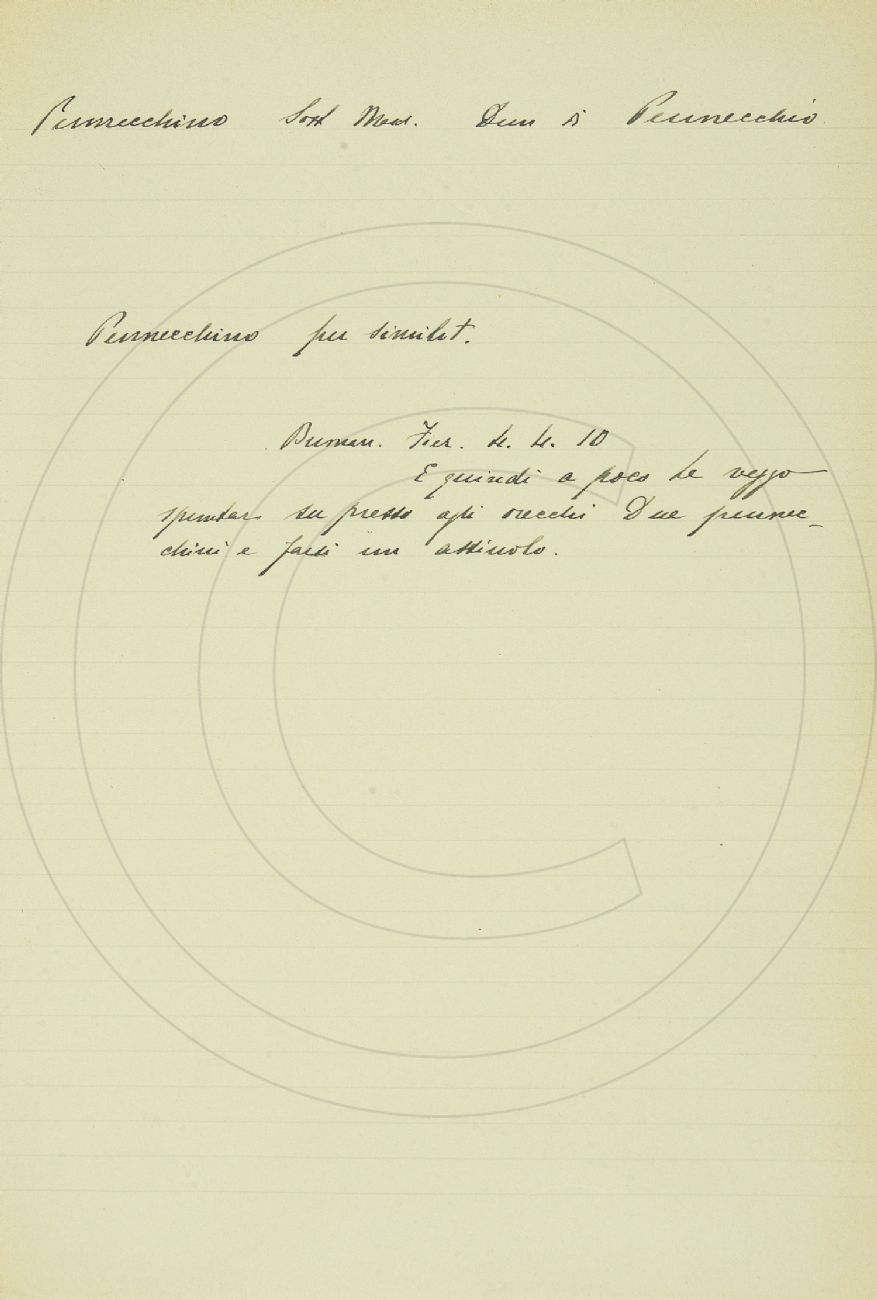 Pennecchino Sost Mas. Dim di Pennecchio
Pennecchino per similit.
Buonar. Fier. 4. 4. 10
E quindi a poco le veggo
spuntar su presso agli orecchi Due pennec-
chini e farsi un assiuolo.